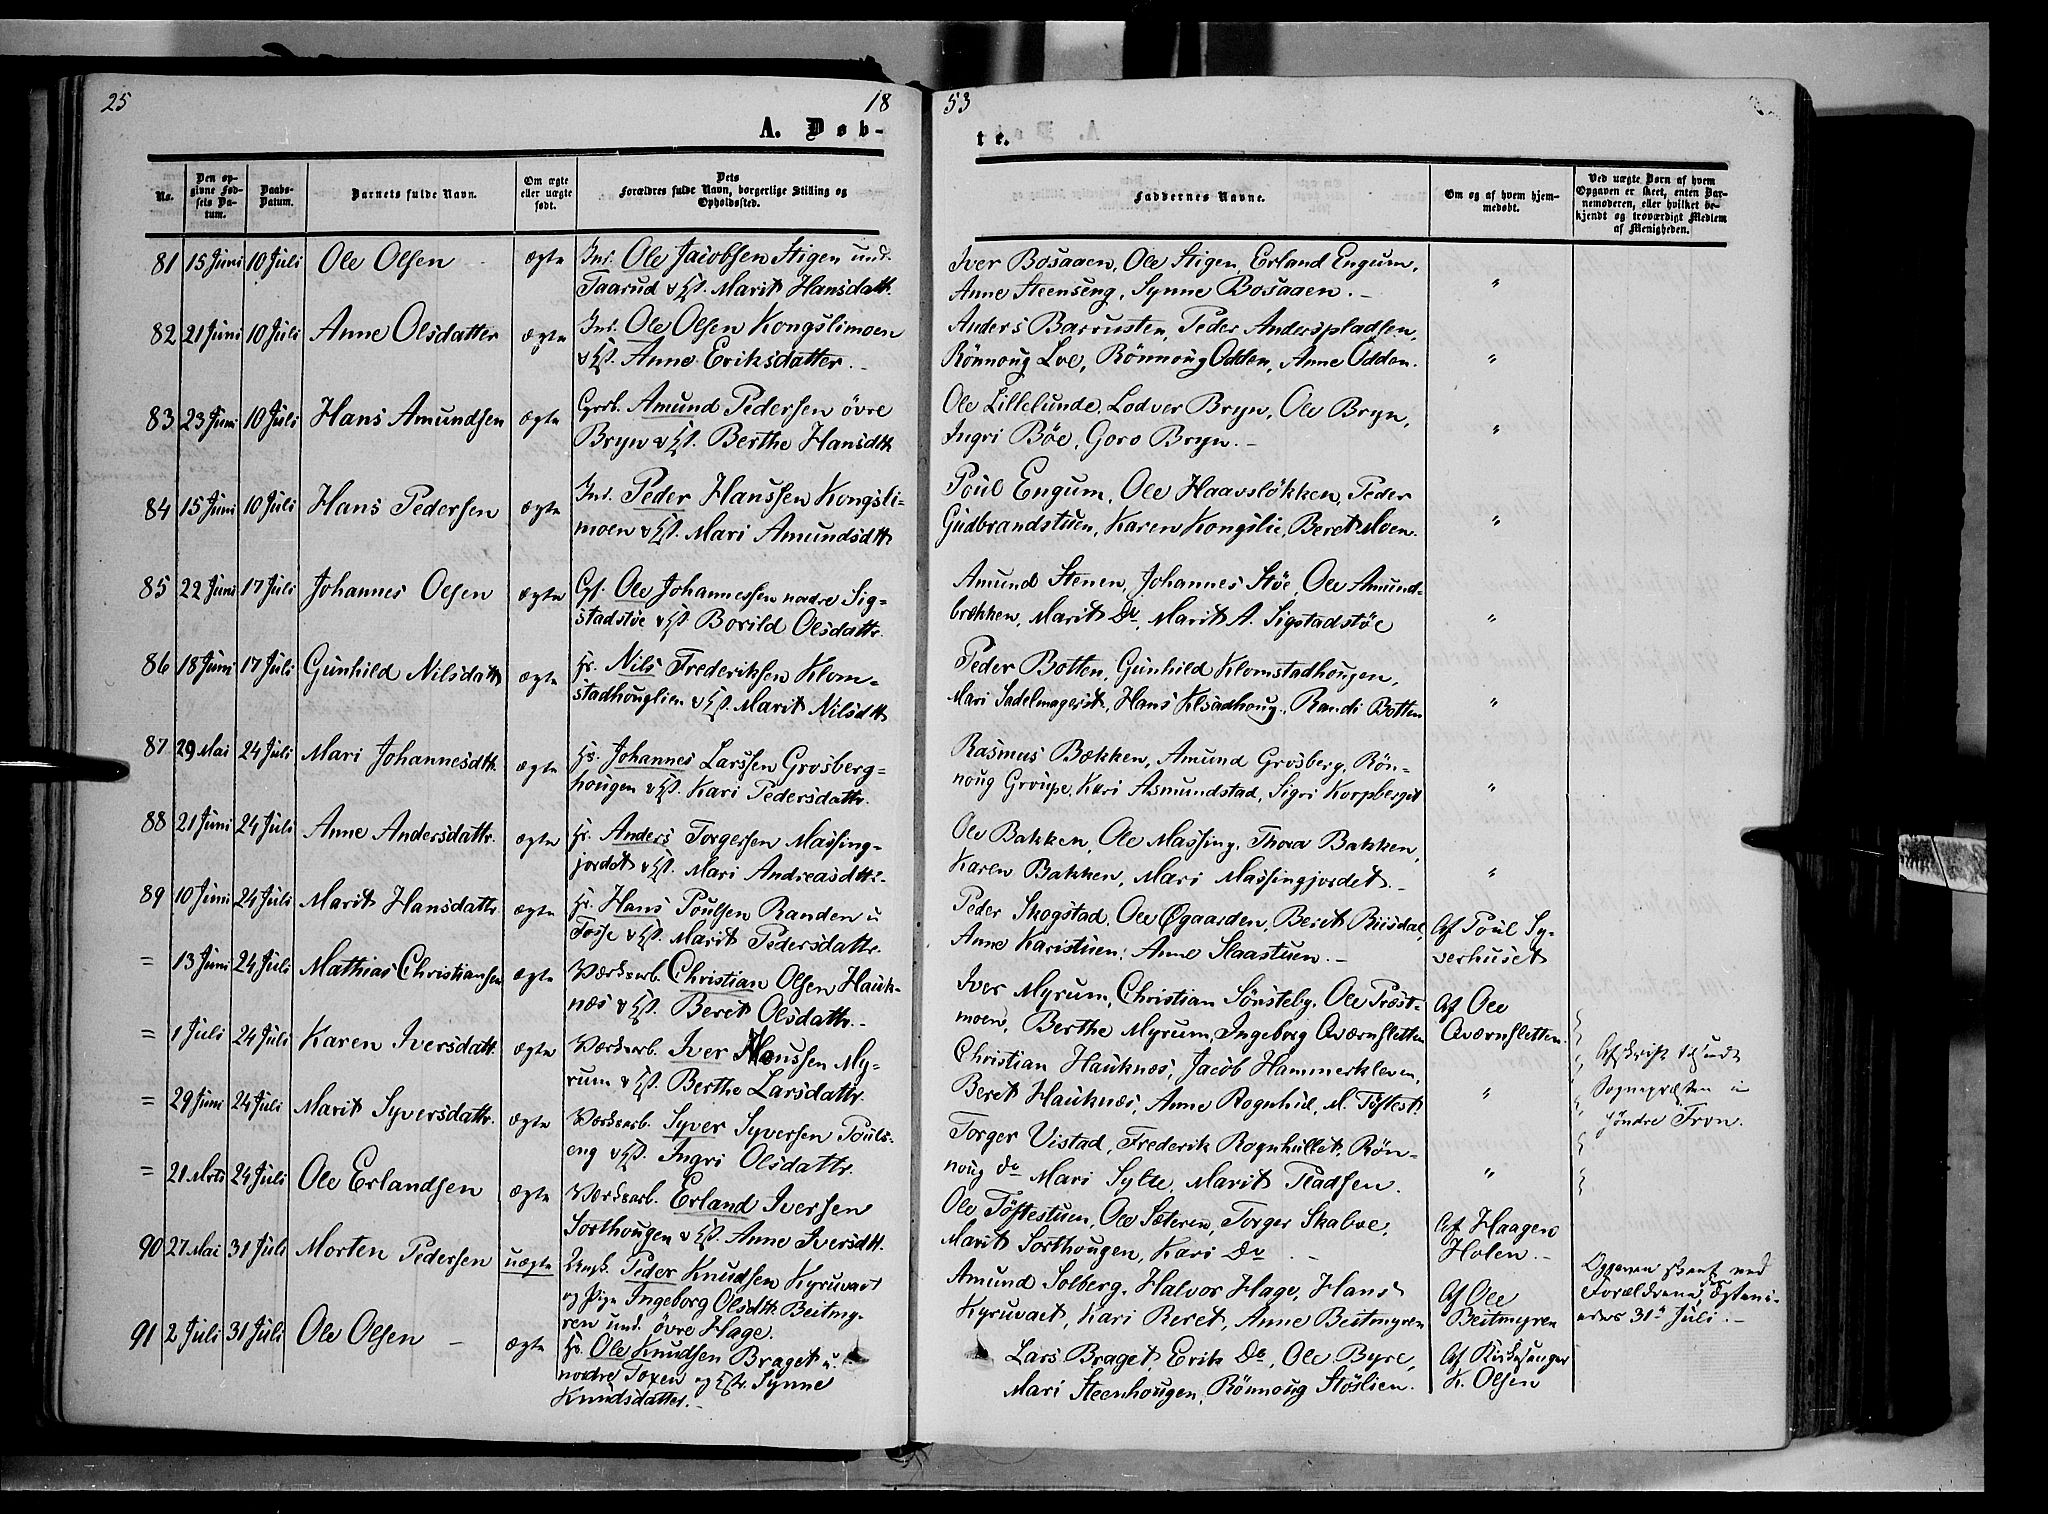 25
18
53
A. Døb-
te.
No.
Den op-
givne Fød-
sels Da-
tum.
Daabs-
Datum.
Barnets fulde Navn.
Om ægte
eller uægte
født.
Dets
Forældres fulde Navn, borgerlige Stilling og
Opholdssted.
Faddernes Navne.
Om og af hvem hjem-
medøbt.
Ved uægte Børn af hvem
Opgaven er skeet, enten Bar-
nemoderen, eller hvilket be-
kjendt og troværdigt Medlem
af Menigheden.
81 15 Juni 10 Juli Ole Olsen - ægte Ins. Ole Jacobsen Stigen und.
Taarud & Hst. Marit Hansdatt.
Iver Bosaaen, Ole Stigen, Erland Engum,
Anne Steenseng, Synne Bosaaen. - "
82 21 Juni 10 Juli Anne Olsdatter ægte Ins. Ole Olsen Kongslimoen
& Hst. Anne Eriksdatter.
Anders Barrusten, Peder Anderspladsen,
Rönnoug Loe, Rönnoug Odden, Anne Odden. "
83 23 Juni 10 Juli Hans Amundsen ægte Grb. Amund Pedersen övre
Bryn & Hst. Berthe Hansdtt
Ole Lillelunde, Lodver Bryn, Ole Bryn,
Ingri Böe, Goro Bryn. - "
84 15 Juni 10 Juli Hans Pedersen ægte Ins. Peder Hanssen Kongsli-
moen & Hst. Mari Amundsdtt
Poul Engum, Ole Haavsløkken, Peder
Gudbrandstuen, Karen Kongslie, Beret Moen. "
85 22 Juni 17 Juli Johannes Olsen ægte Ole Johannessen nordre Sig-
stadstöe & Hst. Borild Olsdattr.
Amund Stenen, Johannes Stöe, Ole Amund-
brækken, Marit Do, Marit A. Sigstadstöe "
86 18 Juni 17 Juli Gunhild Nilsdatt ægte Nils Frederiksen Klom-
stadhouglien & Hst. Marit Nilsdtt
Peder Botten, Gunhild Klomstadhougen,
Mari Sadelmagerst, Hans Klsadhoug, Randi Botten "
87 29 Mai 24 Juli Mari Johannesdtt. ægte Johannes Larssen Grosberg-
hougen & Hst. Kari Pedersdattr.
Rasmus Bækken, Amund Grosberg, Rön-
noug Groupe, Kari Asmundstad, Sigri Korpberget "
88 21 Juni 24 Juli Anne Andersdattr. ægte Anders Torgersen Massing-
jordet & Hst. Mari Andreasdtt.
Ole Bakken, Ole Massing, Thora Bakken,
Karen Bakken, Mari Massingjordet. - "
89 10 Juni 24 Juli Marit Hansdattr ægte Hans Poulsen Randen u
Fosse & Hst. Marit Pedersdattr.
Peder Skogstad, Ole Øgaarden, Berit Riisdal, Af Poul Sy-
Anne Karistuen, Anne Slaastuen. - verhuset
= 13 Juni 24 Juli Mathias Christiansen ægte Værksarb. Christian Olsen Hauk-
næs & Hst. Beret Olsdattr.
Iver Myrum, Christian Sönsteby, Ole Præst- Af Ole
moen, Berthe Myrum, Ingeborg Qværnsletten Qværnsletten.
= 1 Juli 24 Juli Karen Iversdatt. ægte Værksarb. Iver Monssen My-
rum & Hst. Berthe Larsdattr.
Christian Hauknæs, Jacob Hammerkleven,
Beret Hauknæs, Anne Rognhid, M. Töftest. "
Afskrift til udt
Sognepræsten i
søndre Fron.
= 29 Juni 24 Juli Marit Syversdattr. ægte Værksarb. Syver Syversen Pouls-
eng & Hst. Ingri Olsdattr.
Torger Vistad, Frederik Rognhullet, Rön-
noug Do Mari Sylte, Marit Pladsen. "
= 21 Mrts 24 Juli Ole Erlandsen ægte Værksarb. Erland Iversen
Sorthougen & Hst. Anne Iversdtt.
Ole Töftestuen, Ole Sæteren, Torger Skabve, Af Haagen
Marit Sorthougen, Kari Do. - Holen. -
90 27 Mai 31 Juli Morten Pedersen uægte Ungk. Peder Knudsen Kyruvaet
og Pige Ingeborg Olsdtt. Beitmy-
ren und. övre Hage.
Amund Solberg, Halvor Hage, Hans Af Ole
Kyruvaet, Kari Reret, Anne Beitmyren Beitmyren
Opgaven skeet ved
Forældrene, Ægtevi-
edes 31te Juli. -
91 2 Juli 31 Juli Ole Olsen - ægte Ole Knudsen Braget u.
nordre Toxen og Hstr. Synne
Knudsdatter. -
Lars Braget, Erik Do, Ole Byre, Af Kirkesanger
Mari Steenhougen, Rönnoug Stöslien. K. Olsen